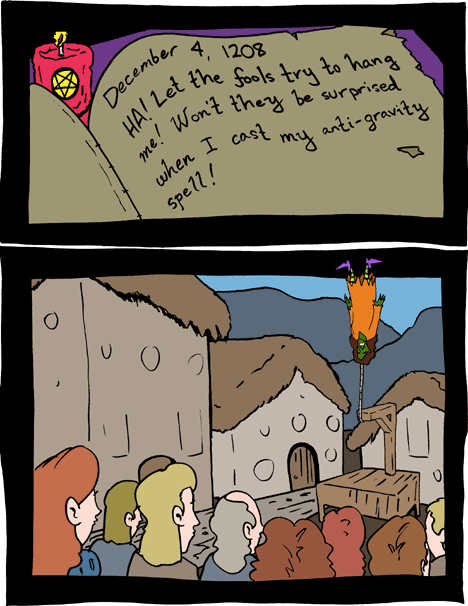 December 4, 1208
HA! Let the fools try to hang
me! Won't they be surprised
when I cast my anti-gravity
spell!